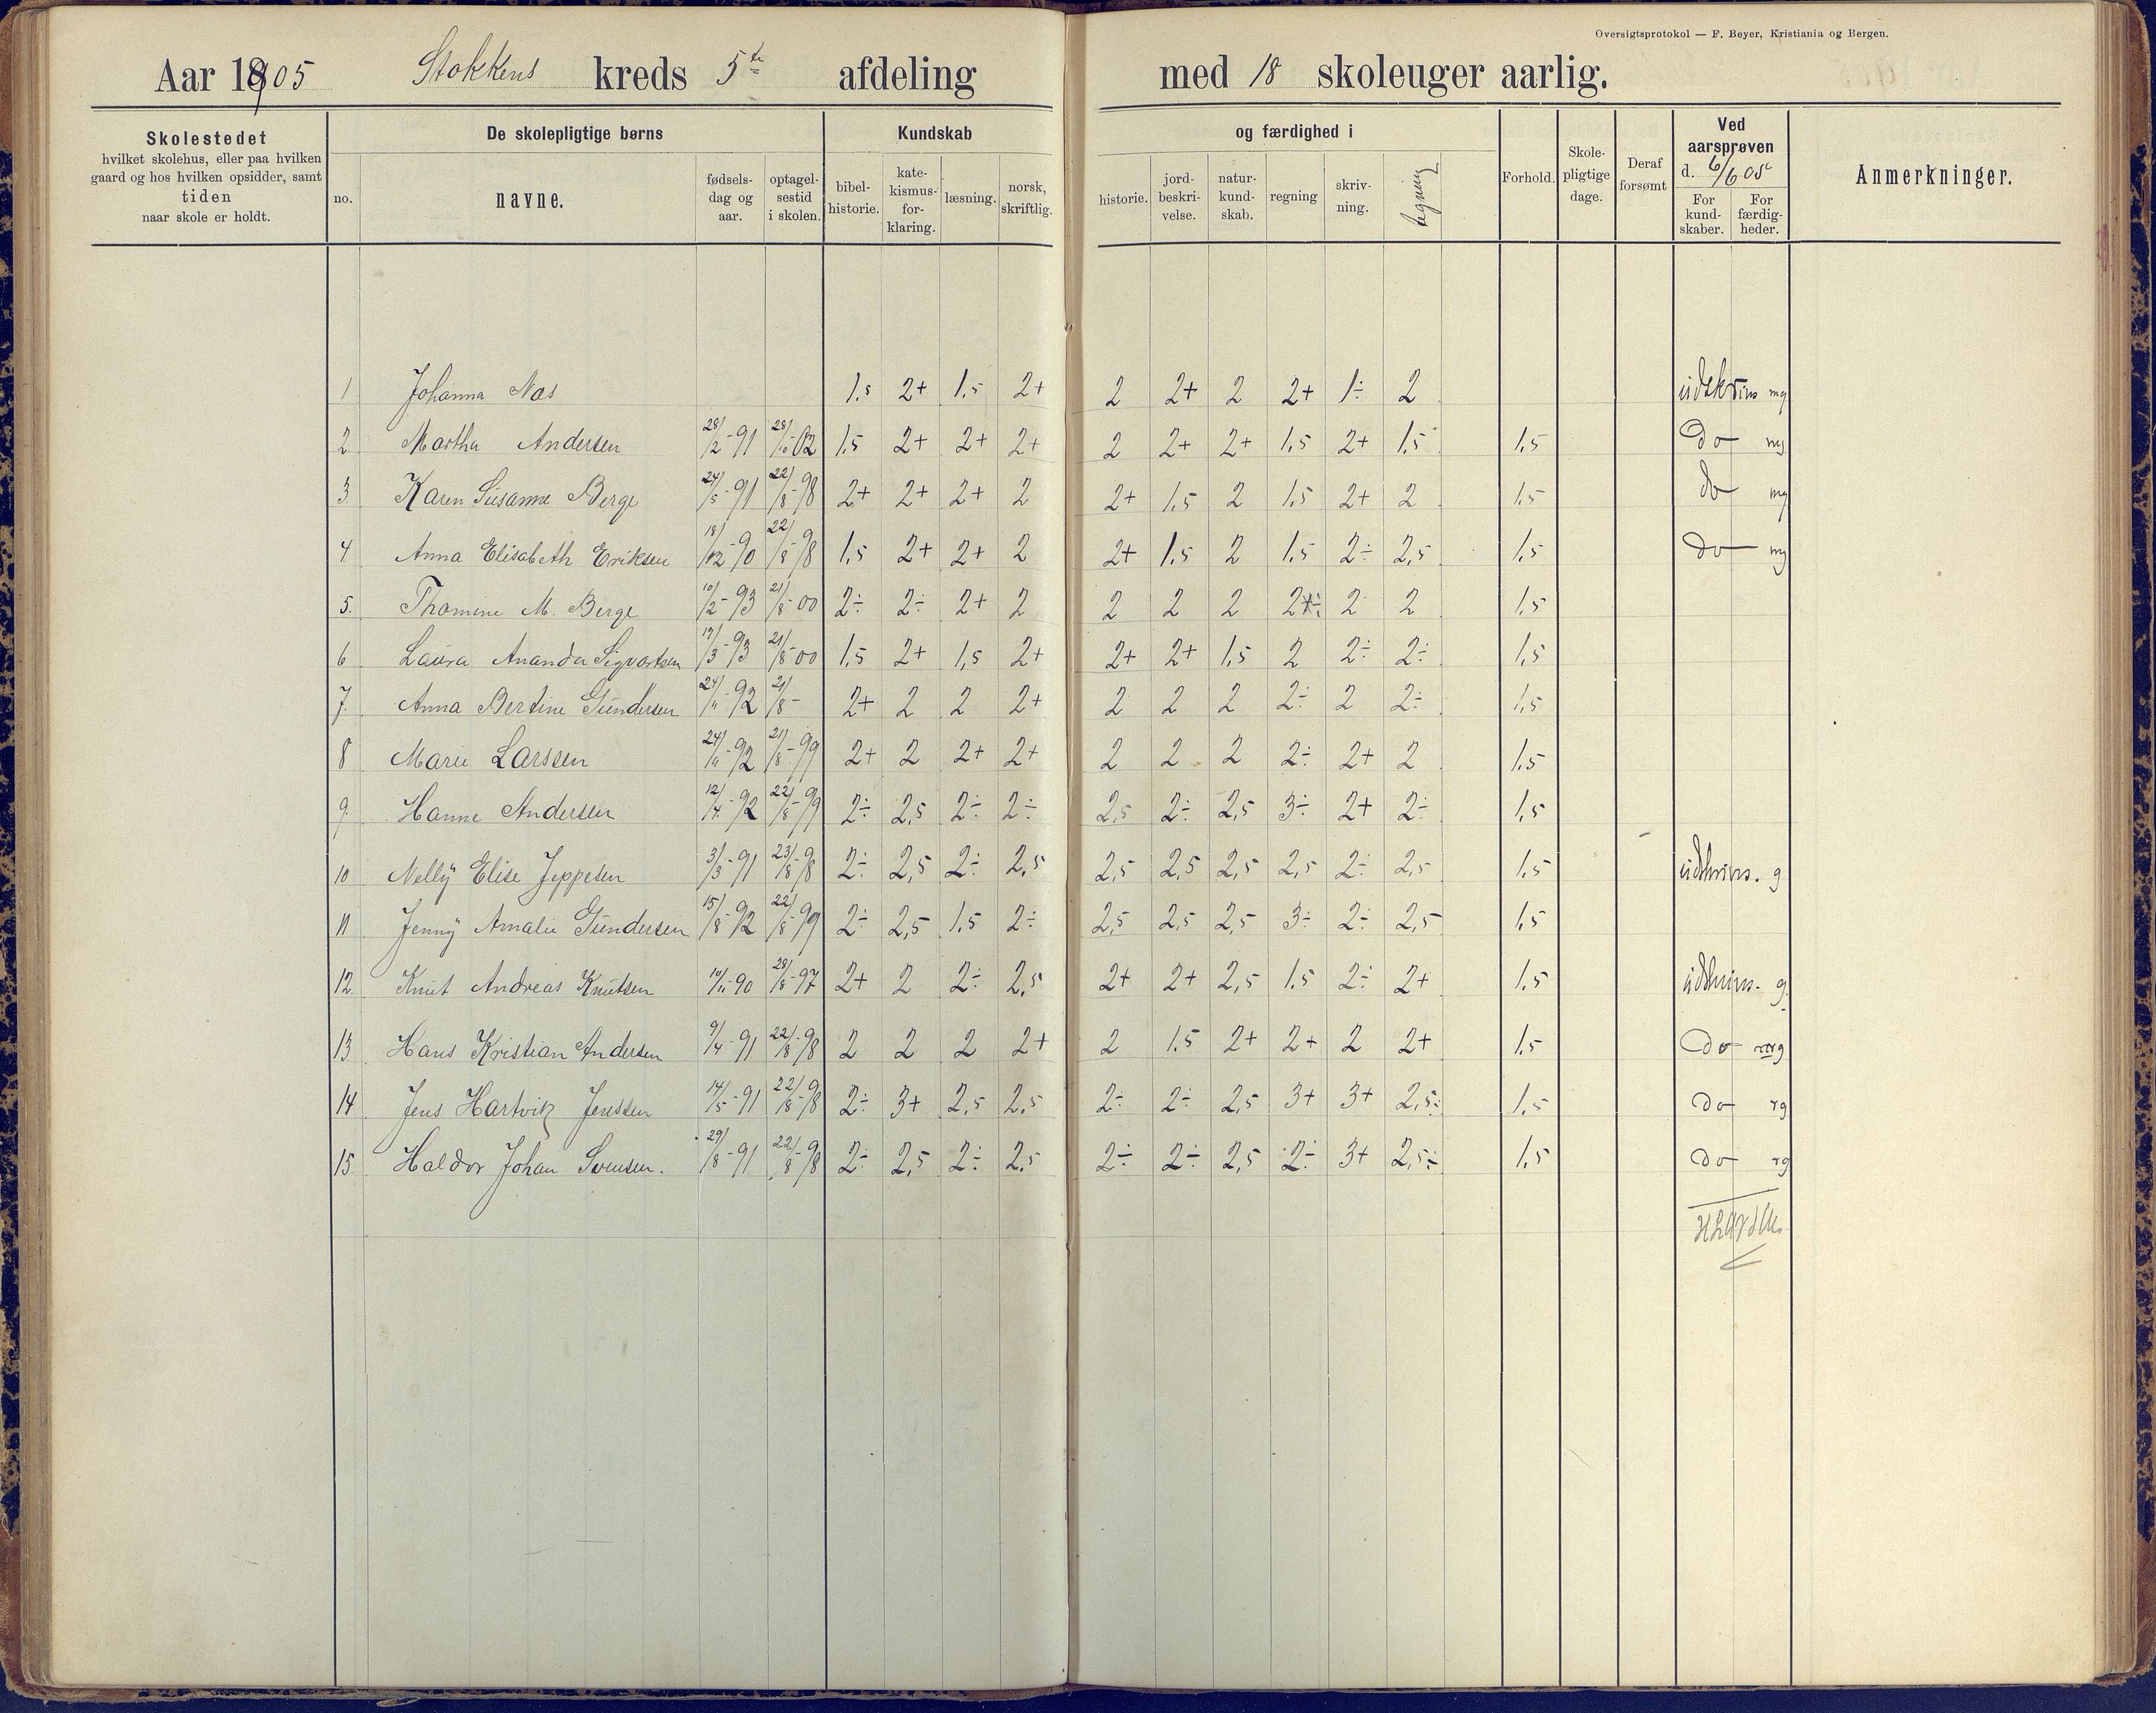 Oversigtsprotokol — F. Beyer, Kristiania og Bergen.
Aar 1905 Stokkens kreds 5te afdeling med 18 skoleuger aarlig.
Skolestedet hvilket skolehus, eller paa hvilken gaard og hos hvilken opsidder, samt tiden naar skole er holdt.
De skolepligtige børns
no. navne. fødsels-dag og aar. optagel-sestid i skolen.
Kundskab og færdighed i
bibel-historie. kate-kismus-for-klaring. læsning. norsk, skriftlig. historie. jord-beskri-velse. natur-kund-skab. regning skriv-ning. tegning
Forhold. Skole-pligtige dage. Deraf forsømt
Ved aarsprøven d. 6/6 05
For kund-skaber. For færdig-heder.
Anmerkninger.
1 Johanna Næs 1.5 2+ 1.5 2+ 2 2+ 2 2+ 1÷ 2 mg
2 Martha Andersen 28/2-91 28/10-02 1.5 2+ 2+ 2+ 2 2+ 2+ 1.5 2+ 1.5 1.5 do mg
3. Karen Susanne Berge 24/5-91 22/8-98 2+ 2+ 2+ 2 2+ 1.5 2 1.5 2+ 2 1.5 do mg
4 Anna Elisabeth Eriksen 18/12-90 22/8-98 1.5 2+ 2+ 2 2+ 1.5 2 1.5 2÷ 2,5 1.5 do mg
5. Thomine M. Berge 10/2-93 21/8-00 2÷ 2÷ 2+ 2 2 2 2 2÷ 2 2 1.5
6 Laura Ananda Sigvartsen 17/3-93 21/8-00 1.5 2+ 1,5 2+ 2+ 2+ 1.5 2 2÷ 2÷ 1.5
7. Anna Bertine Gundersen 24/11-92 21/8- 2+ 2 2 2+ 2 2 2 2÷ 2 2÷ 1.5
8 Marie Larssen 24/11-92 21/8-99 2+ 2 2+ 2+ 2 2 2 2÷ 2+ 2 1.5
9. Hanne Andersen 12/4-92 22/8-99 2÷ 2,5 2÷ 2÷ 2,5 2÷ 2,5 3÷ 2+ 2÷ 1.5
10 Nelly Elise Jeppesen 3/3-91 23/8-98 2÷ 2,5 2÷ 2,5 2,5 2,5 2,5 2,5 2÷ 2,5 1.5 g
11 Jenny Amalie Gundersen 15/8-92 22/8-99 2÷ 2,5 1.5 2÷ 2,5 2,5 2,5 3÷ 2÷ 2,5 1.5
12. Knut Andreas Knutsen 10/11-90 28/8-97 2+ 2 2÷ 2,5 2+ 2+ 2,5 1.5 2÷ 2+ 1.5 g.
13 Hans Kristian Andersen 9/4-91 22/8-98 2 2 2 2+ 2 1.5 2+ 2+ 2 2+ 1.5 do
14 Jens Hartvig Jenssen 14/5-91 22/8-98 2÷ 3+ 2,5 2,5 2÷ 2÷ 2,5 3+ 3+ 2,5÷ 1.5 do rg
15. Haldor Johan Svensen. 29/8-91 22/8-98 2÷ 2,5 2÷ 2,5 2÷ 2÷ 2,5 2÷ 3+ 2,5÷ 1.5 do rg